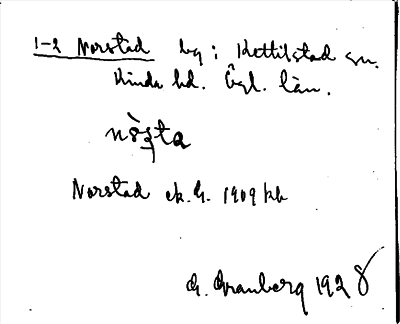 1-2 Norstad by i Kettilstad sn.
Kinda hd. Ögl. län.
nòsta
Norstad ek. G. 1909 kb
G. Granberg 1928